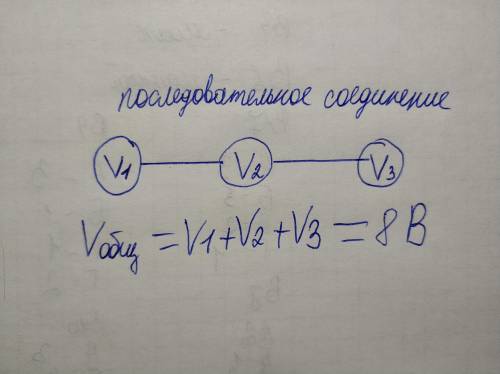 последовательное соединение
V1 V2 V3
Vобщ = V1+V2+V3 = 8 В